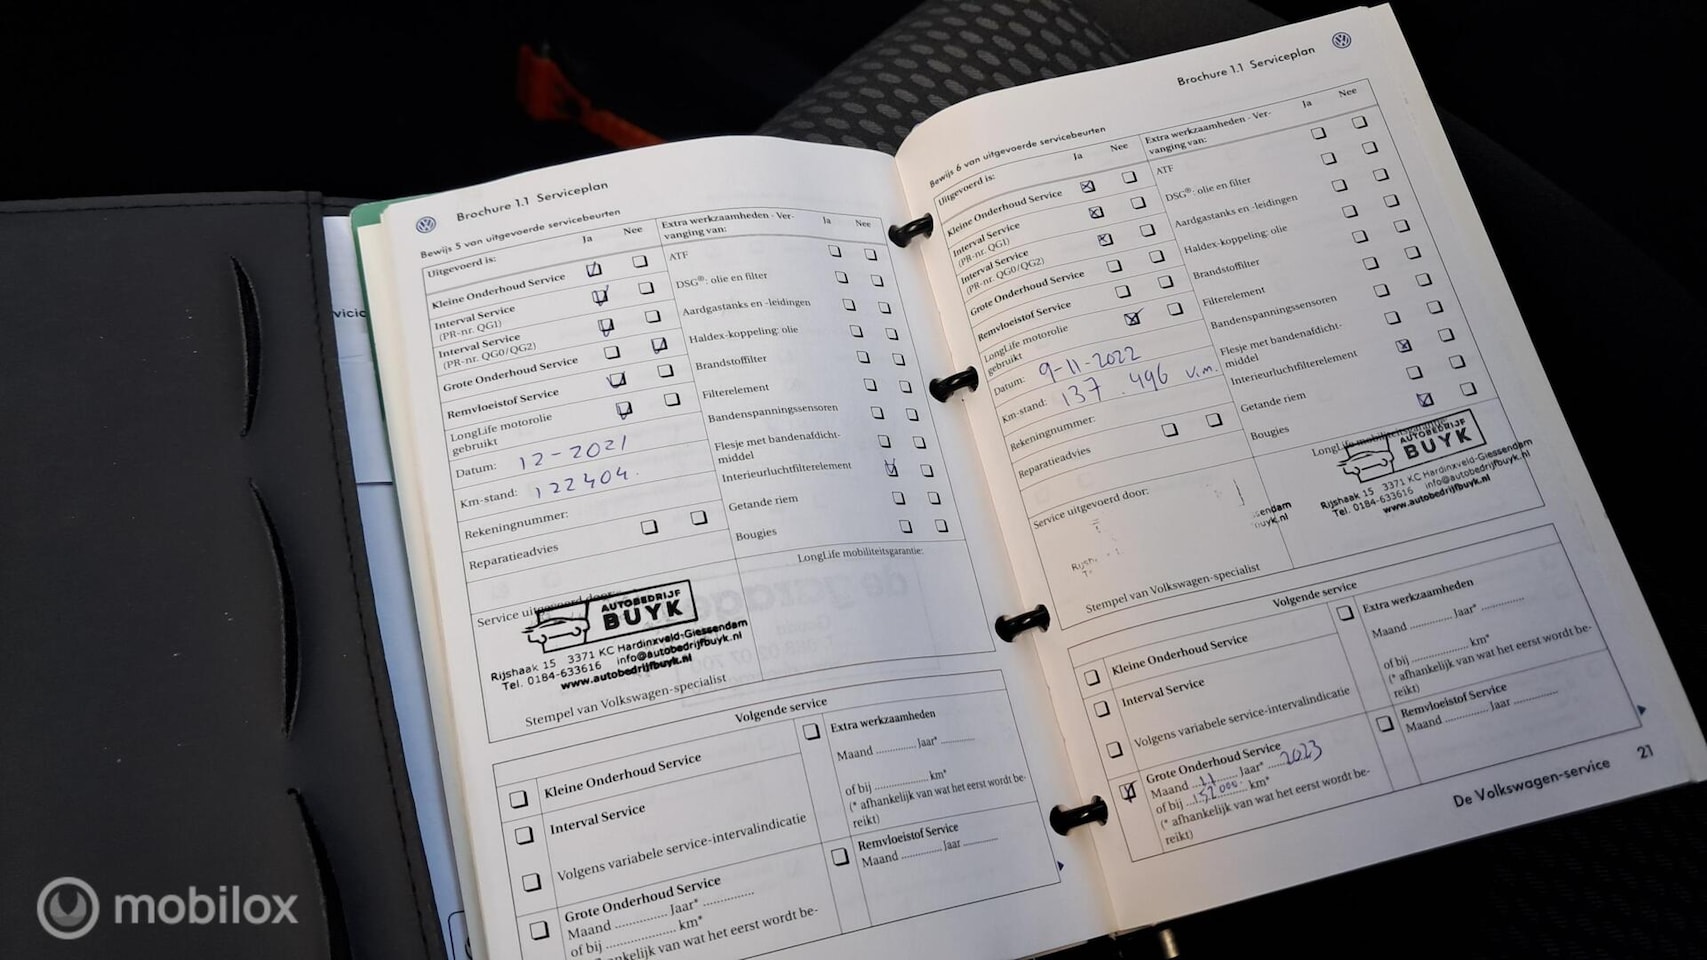 Brochure 1.1 Serviceplan
Bewijs 5 van uitgevoerde servicebeurten
Uitgevoerd is:
Ja
Nee
Kleine Onderhoud Service
Interval Service
(PR-nr. QG1)
Interval Service
(PR-nr. QG0/QG2)
Grote Onderhoud Service
Remvloeistof Service
LongLife motorolie
gebruikt
Datum: 12-2021
Km-stand: 122404.
Rekeningnummer:
Reparatieadvies
Extra werkzaamheden - Ver-
vanging van:
Ja
Nee
ATF
DSG®: olie en filter
Aardgastanks en -leidingen
Haldex-koppeling: olie
Brandstoffilter
Filterelement
Bandenspanningssensoren
Flesje met bandenafdicht-
middel
Interieurluchtfilterelement
Getande riem
Bougies
Service uitgevoerd door:
LongLife mobiliteitsgarantie:
AUTOBEDRIJF
BUYK
Rijshaak 15 3371 KC Hardinxveld-Giessendam
Tel. 0184-633616 info@autobedrijfbuyk.nl
www.autobedrijfbuyk.nl
Stempel van Volkswagen-specialist
Volgende service
Kleine Onderhoud Service
Interval Service
Volgens variabele service-intervalindicatie
Grote Onderhoud Service
Maand .............. Jaar* ..............
of bij .................... km*
(* afhankelijk van wat het eerst wordt be-
Extra werkzaamheden
Maand .............. Jaar* ..............
of bij .................... km*
(* afhankelijk van wat het eerst wordt be-
reikt)
Remvloeistof Service
Maand .............. Jaar ..............
Brochure 1.1 Serviceplan
Bewijs 6 van uitgevoerde servicebeurten
Uitgevoerd is:
Ja
Nee
Kleine Onderhoud Service
Interval Service
(PR-nr. QG1)
Interval Service
(PR-nr. QG0/QG2)
Grote Onderhoud Service
Remvloeistof Service
LongLife motorolie
gebruikt
Datum: 9-11-2022
Km-stand: 137.496 v.m.
Rekeningnummer:
Reparatieadvies
Extra werkzaamheden - Ver-
vanging van:
Ja
Nee
ATF
DSG®: olie en filter
Aardgastanks en -leidingen
Haldex-koppeling: olie
Brandstoffilter
Filterelement
Bandenspanningssensoren
Flesje met bandenafdicht-
middel
Interieurluchtfilterelement
Getande riem
Bougies
Service uitgevoerd door:
LongLife mobiliteitsgarantie
AUTOBEDRIJF
BUYK
Rijshaak 15 3371 KC Hardinxveld-Giessendam
Tel. 0184-633616 info@autobedrijfbuyk.nl
www.autobedrijfbuyk.nl
Stempel van Volkswagen-specialist
Volgende service
Kleine Onderhoud Service
Interval Service
Volgens variabele service-intervalindicatie
Grote Onderhoud Service
Maand 11 Jaar* 2023
of bij 152000 km*
(* afhankelijk van wat het eerst wordt be-
reikt)
Extra werkzaamheden
Maand .............. Jaar* ..............
of bij .................... km*
(* afhankelijk van wat het eerst wordt be-
reikt)
Remvloeistof Service
Maand .............. Jaar ..............
De Volkswagen-service 21
mobilox